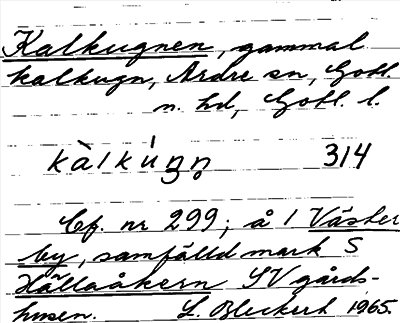 Kalkugnen, gammal
kalkugn, Ardre sn, Gotl.
n. hd, Gotl. l.
kàlkúŋn̥ 314
Cf. nr 299; å 1 Väster
by, samfälld mark S
Hällaåkern SV gårds-
husen. L. Bleckert 1965.